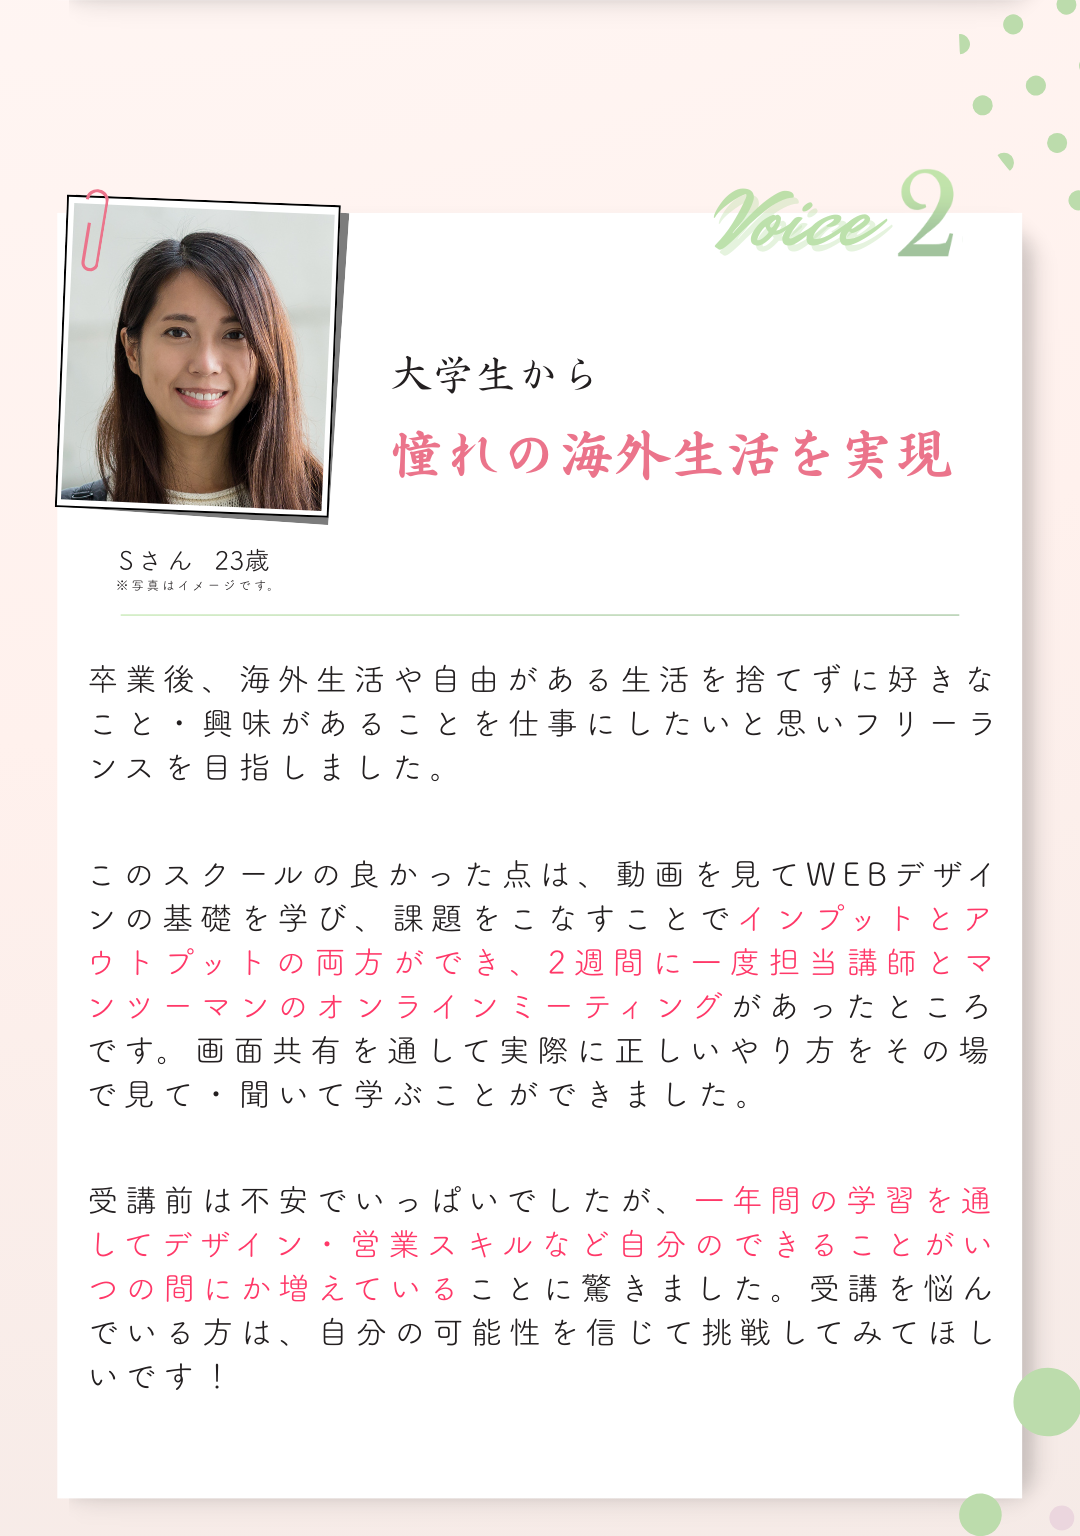 Voice 2
大学生から
憧れの海外生活を実現
Sさん 23歳
※写真はイメージです。
卒業後、海外生活や自由がある生活を捨てずに好きな
こと・興味があることを仕事にしたいと思いフリーラ
ンスを目指しました。
このスクールの良かった点は、動画を見てWEBデザイ
ンの基礎を学び、課題をこなすことでインプットとア
ウトプットの両方ができ、2週間に一度担当講師とマ
ンツーマンのオンラインミーティングがあったところ
です。画面共有を通して実際に正しいやり方をその場
で見て・聞いて学ぶことができました。
受講前は不安でいっぱいでしたが、一年間の学習を通
してデザイン・営業スキルなど自分のできることがい
つの間にか増えていることに驚きました。受講を悩ん
でいる方は、自分の可能性を信じて挑戦してみてほし
いです！